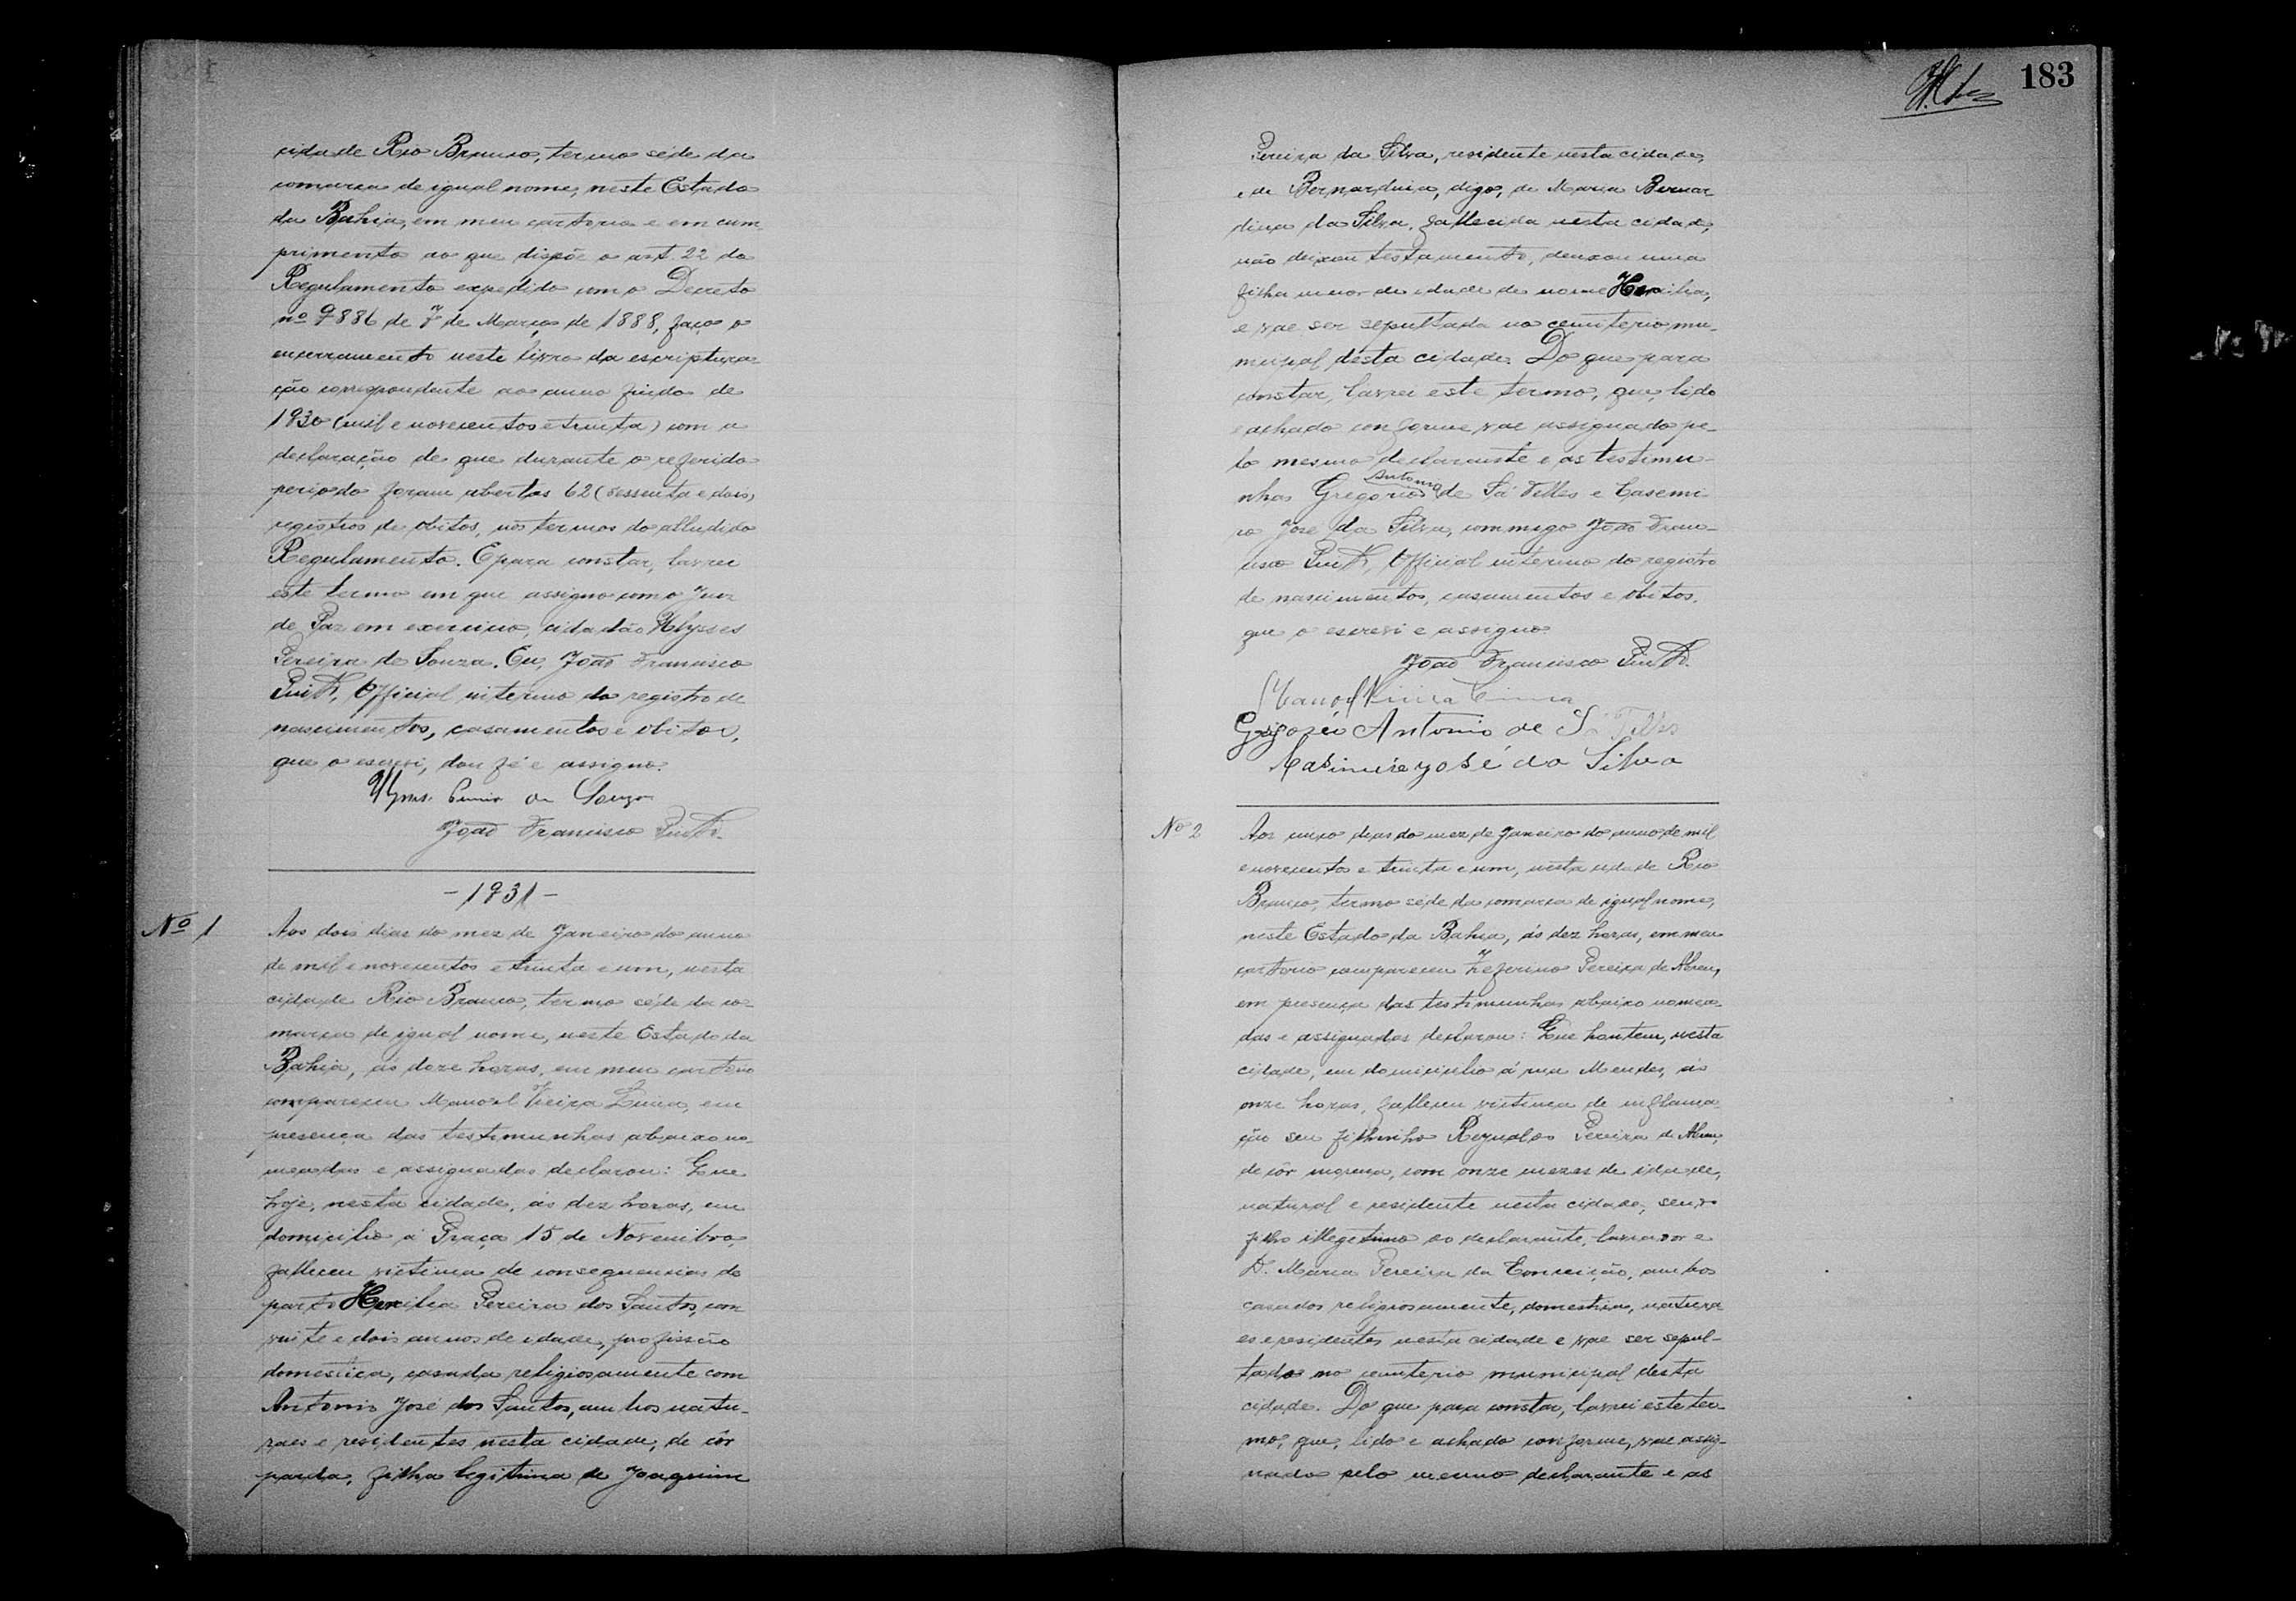 cidade Rio Branco, termo séde da
comarca de igual nome, neste Estado
da Bahia, em meu cartorio e em cum
primento ao que dispõe o art. 22 do
Regulamento expedido com o Decreto
nº 9886 de 7 de Março de 1888, faço o
encerramento neste livro da escriptura
ção correspondente ao anno findo de
1930 (mil e novecentos e trinta) com a
declaração de que durante o referido
periodo foram abertos 62 (sessenta e dois)
registros de obitos, nos termos do alludido
Regulamento. E para constar, lavrei
este termo em que assigno com o Juiz
de Paz em exercicio, cidadão Ulysses
Pereira de Souza. Eu, João Francisco
Pinto, Official interino do registro de
nascimentos, casamentos e obitos,
que o escrevi, dou fé e assigno.
Ulysses Pereira de Souza
João Francisco Pinto.
- 1931 -
Nº 1
Aos dois dias do mez de Janeiro do anno
de mil e novecentos e trinta e um, nesta
cidade Rio Branco, termo séde da co-
marca de igual nome, neste Estado da
Bahia, ás doze horas, em meu cartorio
compareceu Manoel Vieira Lima, em
presença das testimunhas abaixo no-
meadas e assignadas declarou: Que
hoje, nesta cidade, ás dez horas, em
domicilio á Praça 15 de Novembro,
falleceu victima de consequencias do
parto Hercilia Pereira dos Santos, com
vinte e dois annos de idade, profissão
domestica, casada religiosamente com
Antonio José dos Santos, ambos natu-
raes e residentes nesta cidade, de côr
parda, filha legitima de Joaquim
183
Pereira da Silva, residente nesta cidade,
e de Bernardina, digo, de Maria Bernar
dina da Silva, fallecida nesta cidade,
não deixou testamento, deixou uma
filha menor de idade de nome Hercilia,
e vae ser sepultada no cemiterio mu-
nicipal désta cidade. Do que para
constar, lavrei este termo, que, lido
e achado conforme vae assignado pe-
lo mesmo declarante e as testimu-
Antonio
nhas Gregorio de Sá Telles e Casemi-
ro José da Silva, commigo João Fran-
cisco Pinto, Official interino do registro
de nascimentos, casamentos e obitos,
que o escrevi e assigno.
João Francisco Pinto.
Manoel Vieira Lima
Gregorio Antonio de Sá Telles
Casimiro José da Silva
Nº 2
Aos cinco dias do mez de Janeiro do anno de mil
e novecentos e trinta e um, nesta cidade Rio
Branco, termo séde da comarca de igual nome,
neste Estado da Bahia, ás dez horas, em meu
cartorio compareceu Zeferino Pereira de Abreu,
em presença das testimunhas abaixo nomea-
das e assignadas declarou: Que hontem, nesta
cidade, em domicilio á rua Mendes, ás
onze horas, falleceu victima de inflama-
ção seu filhinho Reynaldo Pereira de Abreu,
de côr morena, com onze mezes de idade,
natural e residente nesta cidade, sendo
filho illegitimo do declarante, lavrador e
D. Maria Pereira da Conceição, ambos
casados religiosamente, domestica, natura
es e residentes nesta cidade e vae ser sepul-
tado no cemiterio municipal desta
cidade. Do que para constar, lavrei este ter
mo, que, lido e achado conforme, vae assig-
nado pelo mesmo declarante e as